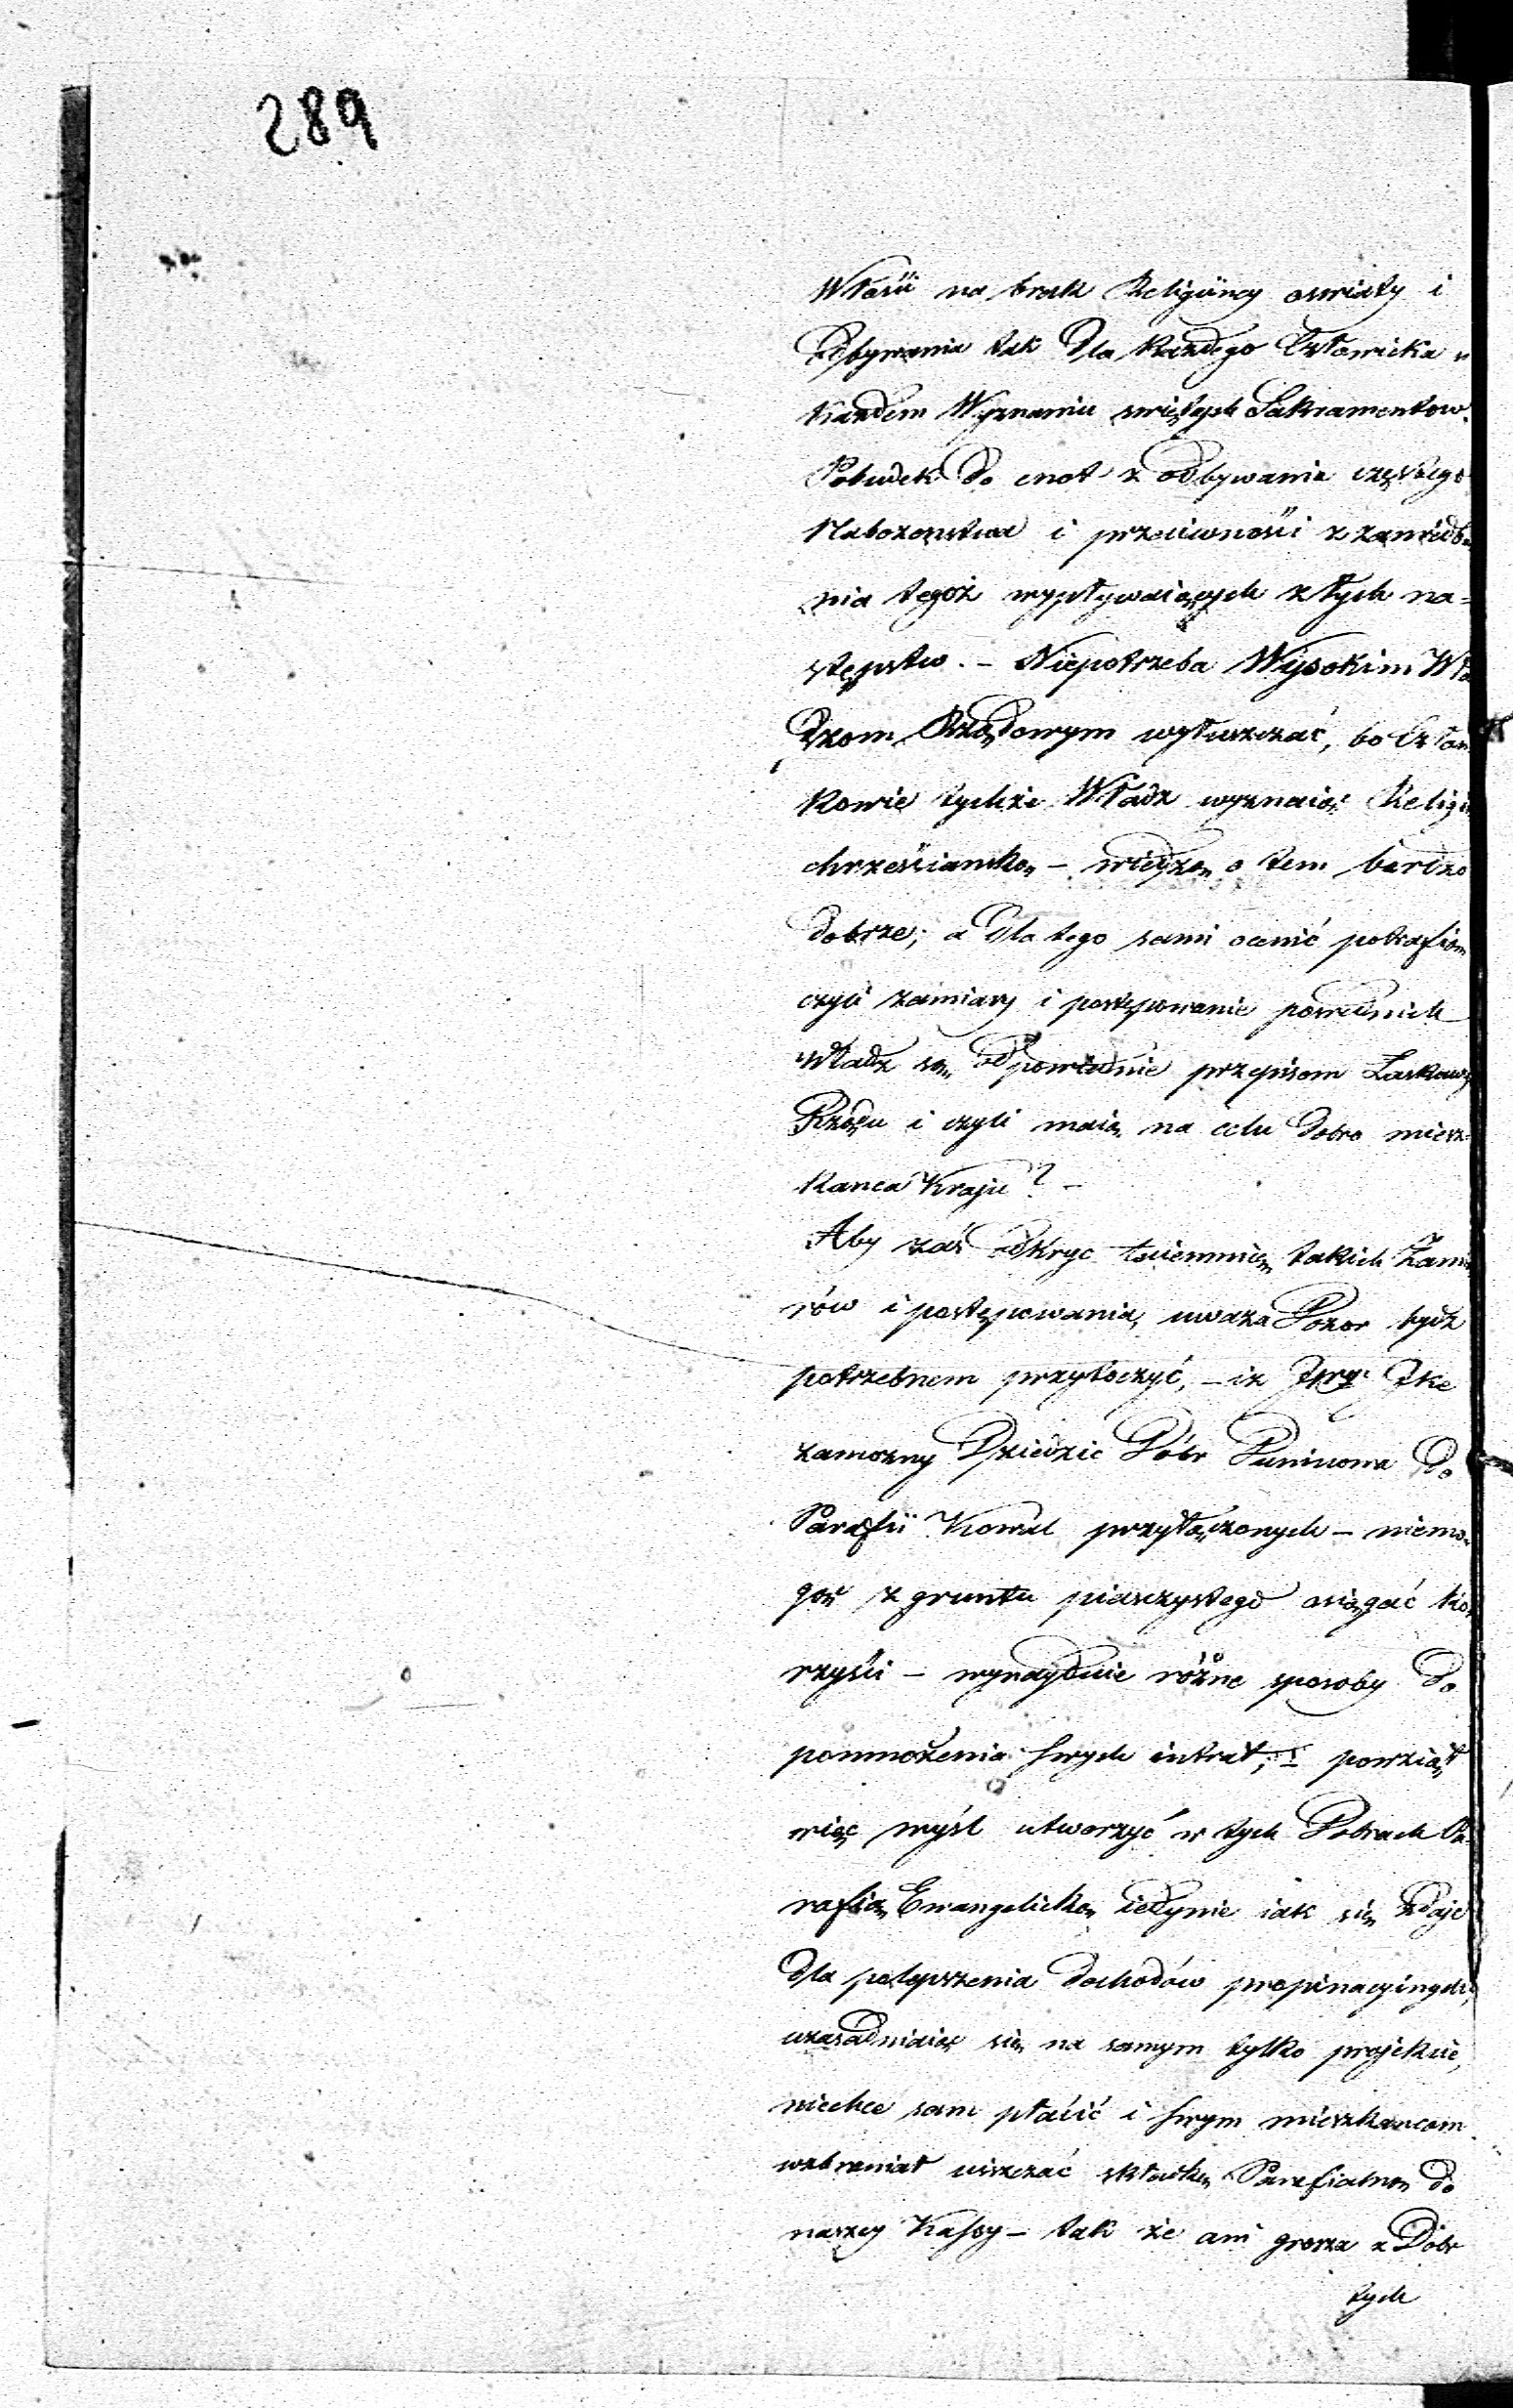 289
Włosci na brak Religiiney oswiaty i
odbywania tak dla każdego Człowieka w
każdem Wyznaniu swiętych Sakramentow.
Pobudek do cnot z odbywania częstego
Nabozenstwa i przeciwności z zaniedba
nia tegoż wypływaiących złych na=
stępstw. – Niepotrzeba Wysokim Wła
dzom Rządowym wyłuszczać, bo Człon
kowie tychże Władz wyznaiąc Religią
chrześciańską – wiedzą o tem bardzo
dobrze; a dla tego sami ocenić potrafią
czyli zamiary i postępowanie posrednich
Władz są odpowiednie przepisom Łaskawego
Rządu i czyli maią na celu dobro miesz=
kanca Kraju? –
Aby zaś odkryc taiemnicę takich Zamia
rów i postępowania, uwaza Dozor bydz
potrzebnem przytoczyć, – iz
zamozny Dziedzic Dóbr do
Parafii Kowal przyłączonych – niemo=
gąc z gruntu piasczystego osiągać ko=
rzyści – wynayduie różne sposoby do
pomnożenia swych intrat; – powziął
więc myśl utworzyć w tych Dobrach Pa=
rafią Ewangelicką iedynie iak się zdaje
dla polepszenia dochodów propinacyinych,
uzasadniaiąc się na samym tylko projekcie,
niechce sam płacić i swym mieszkancom
wzbraniał uiszczać składkę Parafialną do
naszey Kassy – tak że ani grosza z Dobr
tych